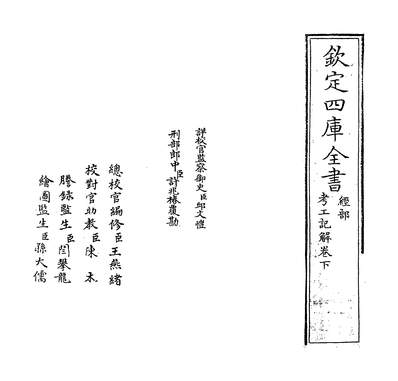 欽定四庫全書
經部
考工記解卷下
詳校官監察御史臣邱文愷
刑部郎中臣許兆椿覆勘
總校官編修臣王燕緒
校對官助教臣陳木
謄錄監生臣閻攀龍
繪圖監生臣孫大儒